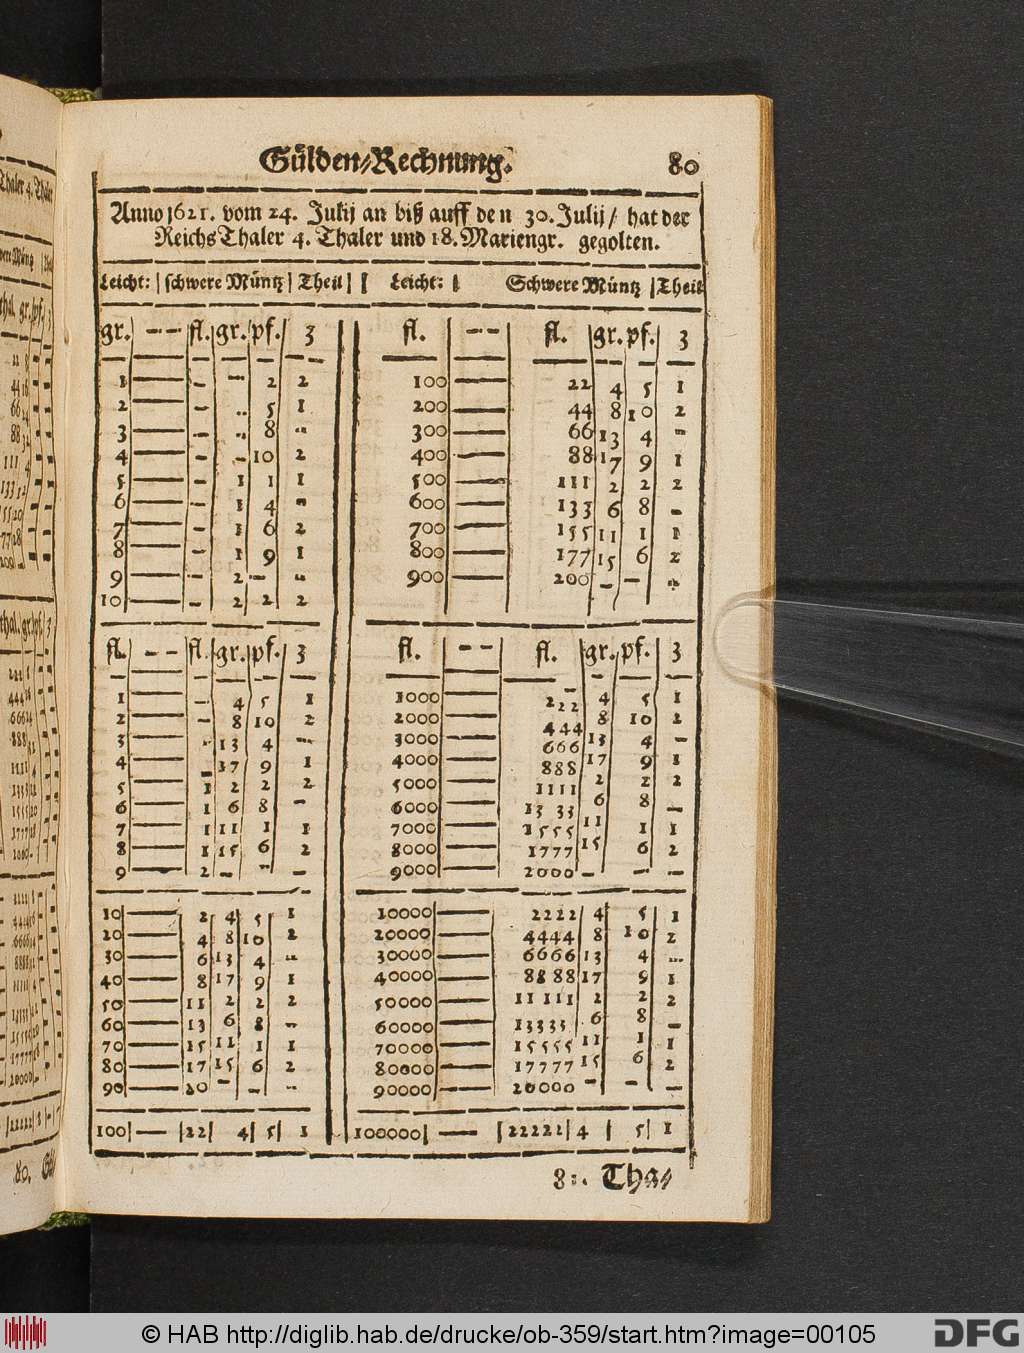 Gülden-Rechnung. 80
Anno 1621. vom 24. Julij an biß auff den 30. Julij / hat der
Reichs Thaler 4. Thaler und 18. Mariengr. gegolten.
Leicht: | schwere Müntz | Theil | | Leicht: | Schwere Müntz | Theil
gr. -- fl. gr. pf. 3
1 — – -- 2 2
2 — – .. 5 1
3 — – .. 8 --
4 — – – 10 2
5 — – 1 1 1
6 — – 1 4 –
7 — – 1 6 2
8 — – 1 9 1
9 — – 2 – --
10 — – 2 2 2
fl. -- fl. gr. pf. 3
1 — – 4 5 1
2 — – 8 10 2
3 — – 13 4 --
4 — – 17 9 1
5 — 1 2 2 2
6 — 1 6 8 –
7 — 1 11 1 1
8 — 1 15 6 2
9 — 2 – – –
10 — 2 4 5 1
20 — 4 8 10 2
30 — 6 13 4 --
40 — 8 17 9 1
50 — 11 2 2 2
60 — 13 6 8 --
70 — 15 11 1 1
80 — 17 15 6 2
90 — 20 – – --
100 | — | 22 | 4 | 5 | 1
fl. -- fl. gr. pf. 3
100 — 22 4 5 1
200 — 44 8 10 2
300 — 66 13 4 --
400 — 88 17 9 1
500 — 111 2 2 2
600 — 133 6 8 –
700 — 155 11 1 1
800 — 177 15 6 2
900 — 200 – – --
fl. -- fl. gr. pf. 3
1000 — 222 4 5 1
2000 — 444 8 10 2
3000 — 666 13 4 –
4000 — 888 17 9 1
5000 — 1111 2 2 2
6000 — 1333 6 8 –
7000 — 1555 11 1 1
8000 — 1777 15 6 2
9000 — 2000 – – –
10000 — 2222 4 5 1
20000 — 4444 8 10 2
30000 — 6666 13 4 --
40000 — 8888 17 9 1
50000 — 11111 2 2 2
60000 — 13333 6 8 –
70000 — 15555 11 1 1
80000 — 17777 15 6 2
90000 — 20000 – – –
100000 | — | 22222 | 4 | 5 | 1
81. Tha-
© HAB http://diglib.hab.de/drucke/ob-359/start.htm?image=00105
DFG